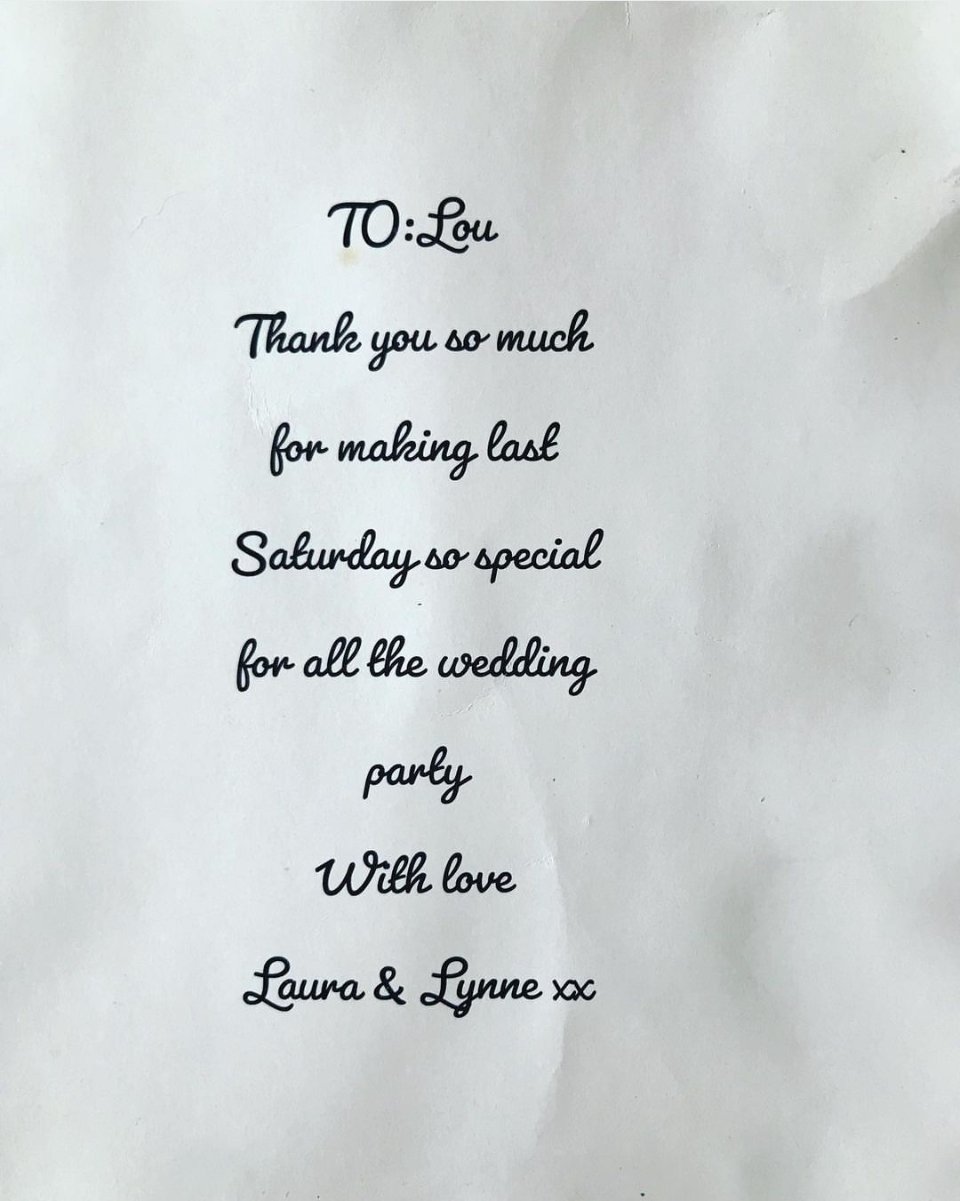 TO:Lou
Thank you so much
for making last
Saturday so special
for all the wedding
party
With love
Laura & Lynne xx